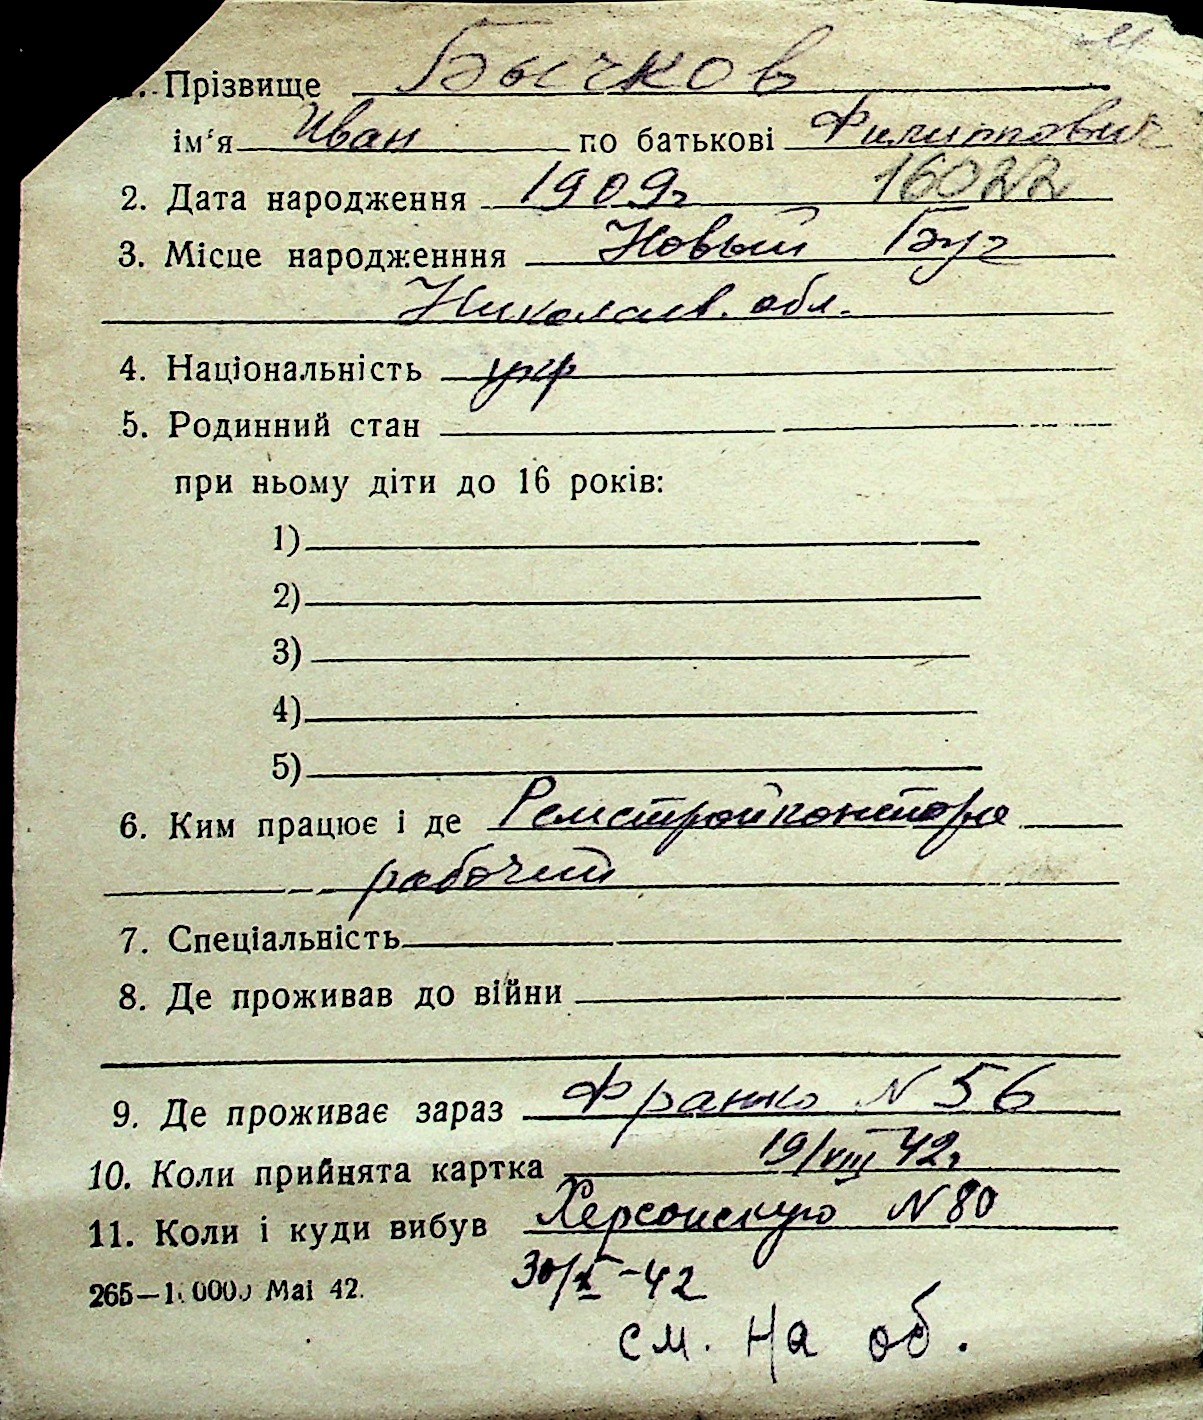 1. Прізвище Бычков
ім'я Иван по батькові Филиппович
2. Дата народження 1909г 16022
3. Місце народженння Новый Буг
Николаев. обл.
4. Національність укр
5. Родинний стан
при ньому діти до 16 років:
1)
2)
3)
4)
5)
6. Ким працює і де Ремстройконтора
рабочий
7. Спеціальність
8. Де проживав до війни
9. Де проживає зараз Франко N 56
10. Коли прийнята картка 19/VIII 42г
11. Коли і куди вибув Херсонскую N 80
265— Mai 42. 30/X-42
см. на об.